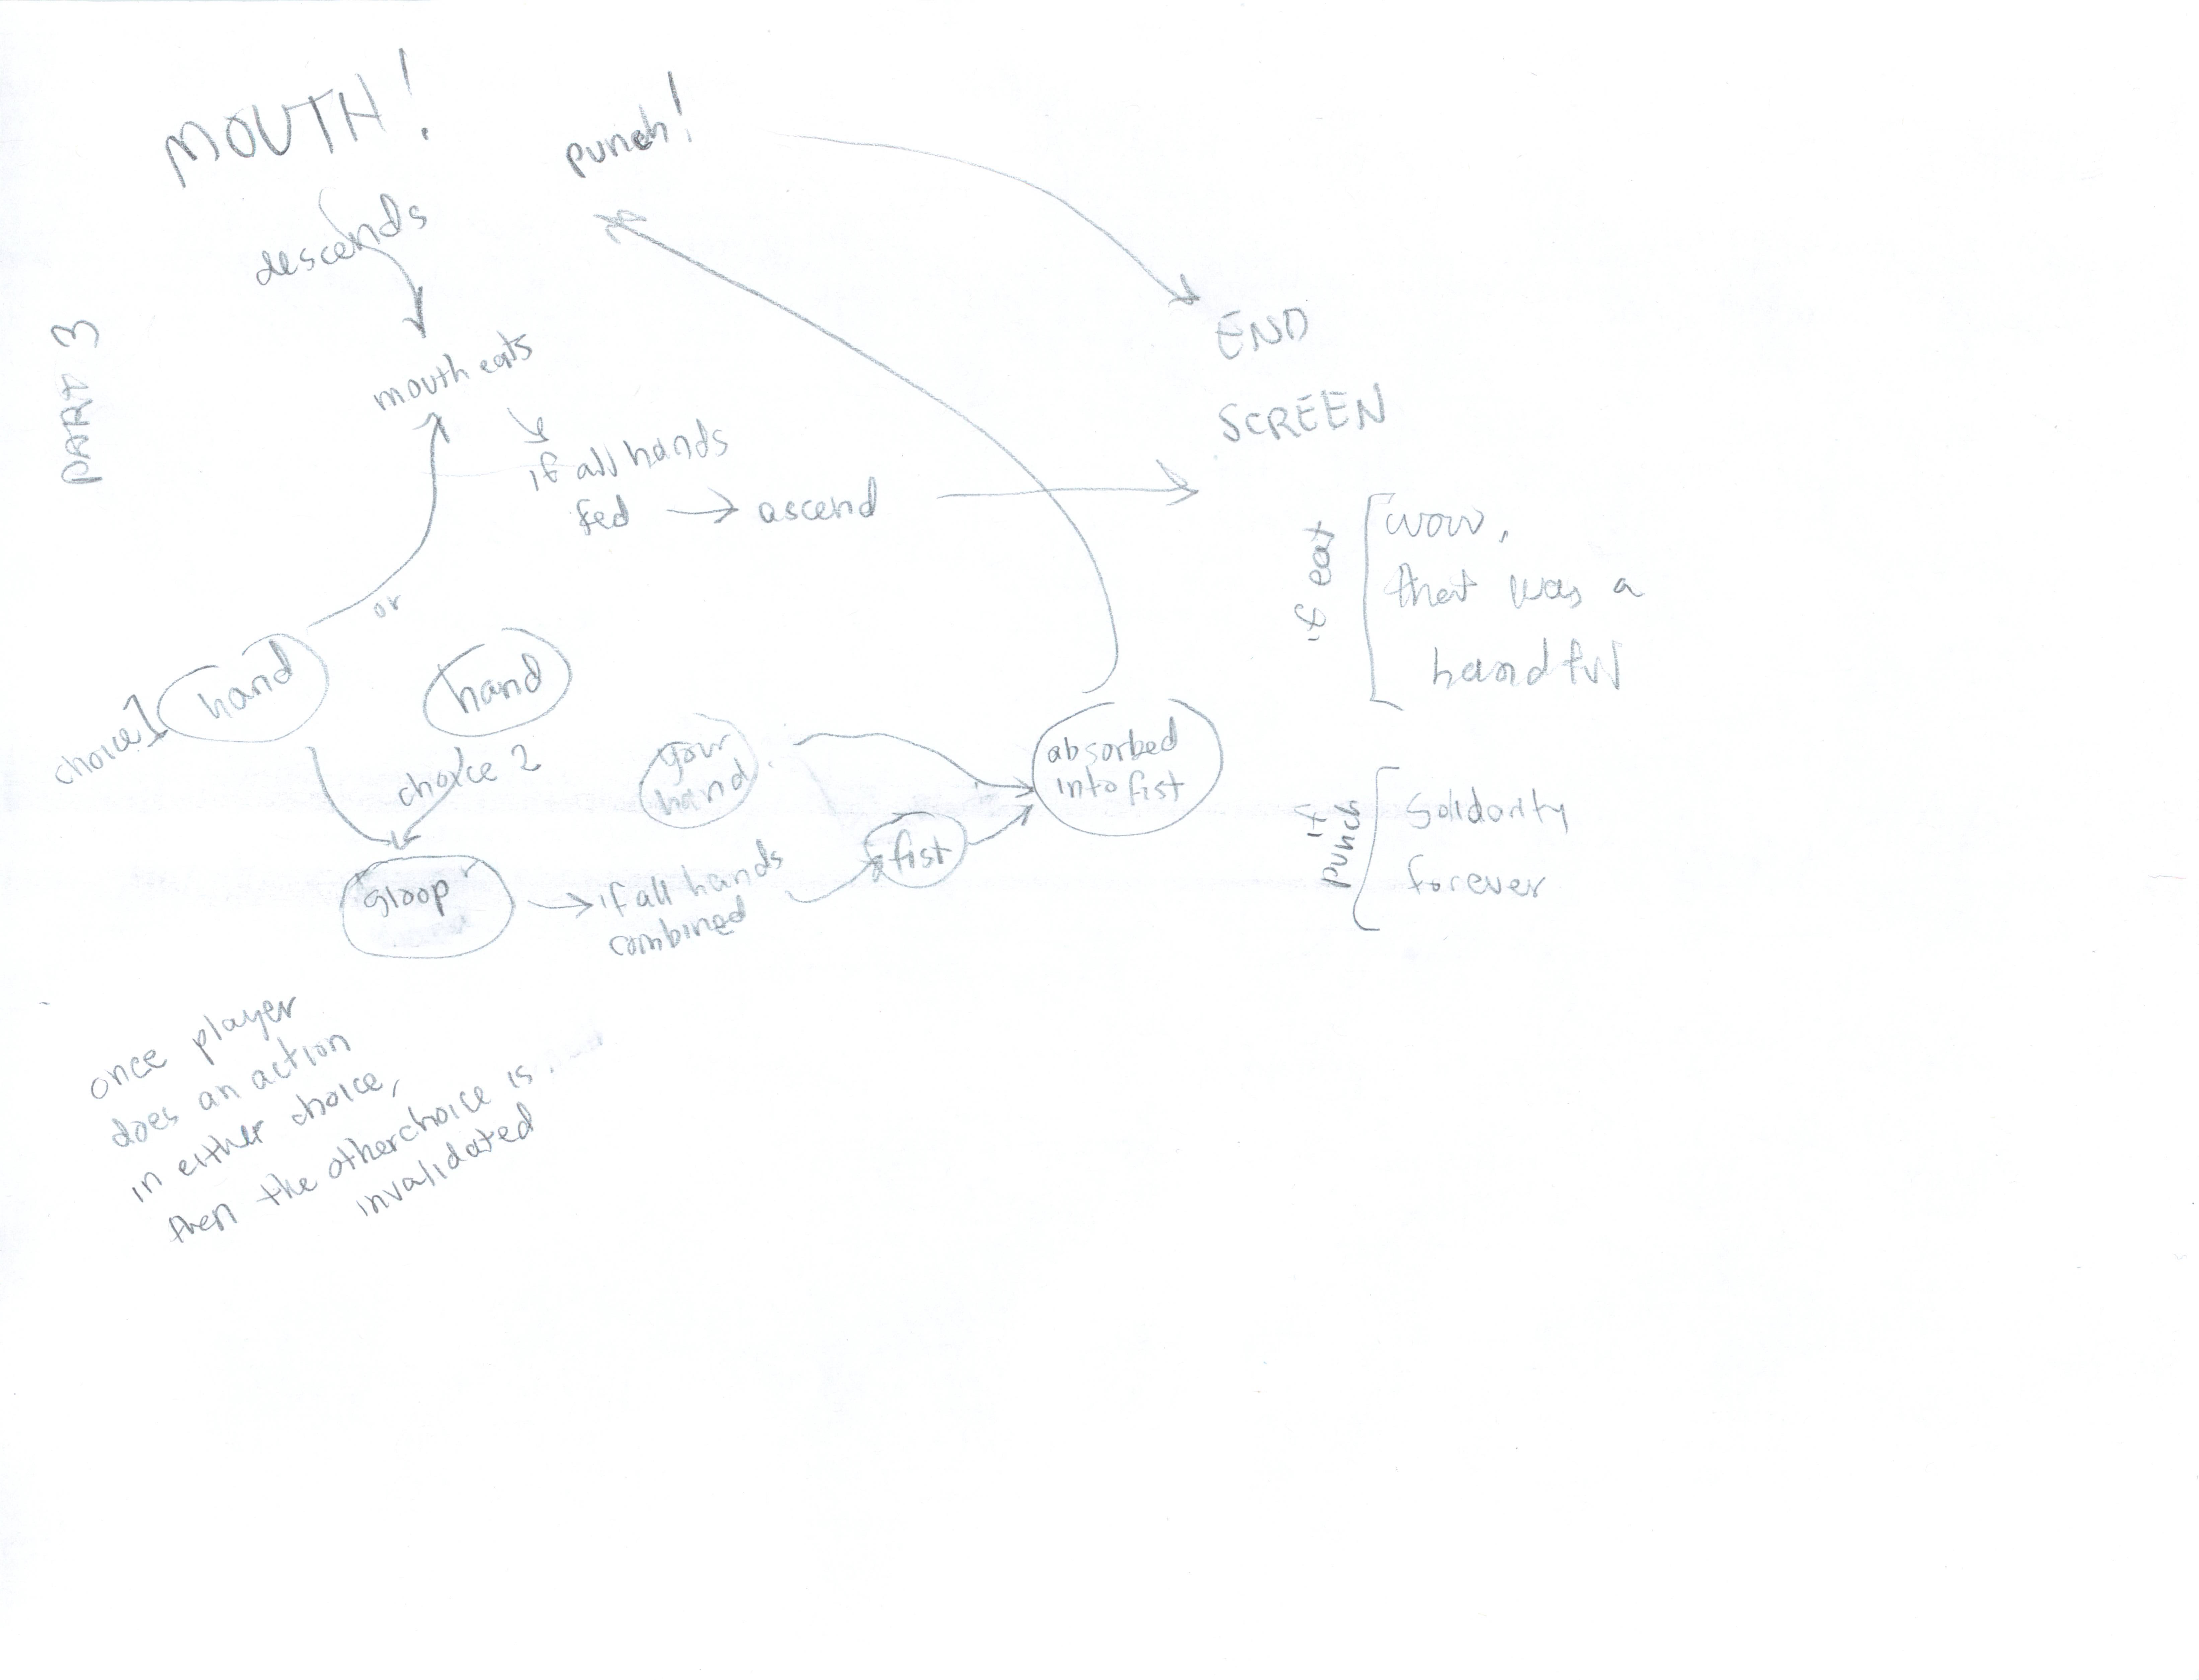 MOUTH!
punch!
descends
PART 3
mouth eats
if all hands
fed → ascend
END
SCREEN
if eat
wow,
that was a
handful
or
choice 1
hand
hand
choice 2
your
hand
absorbed
into fist
gloop
if all hands
combined
fist
if
punch
Solidarity
forever
once player
does an action
in either choice,
then the other choice is
invalidated